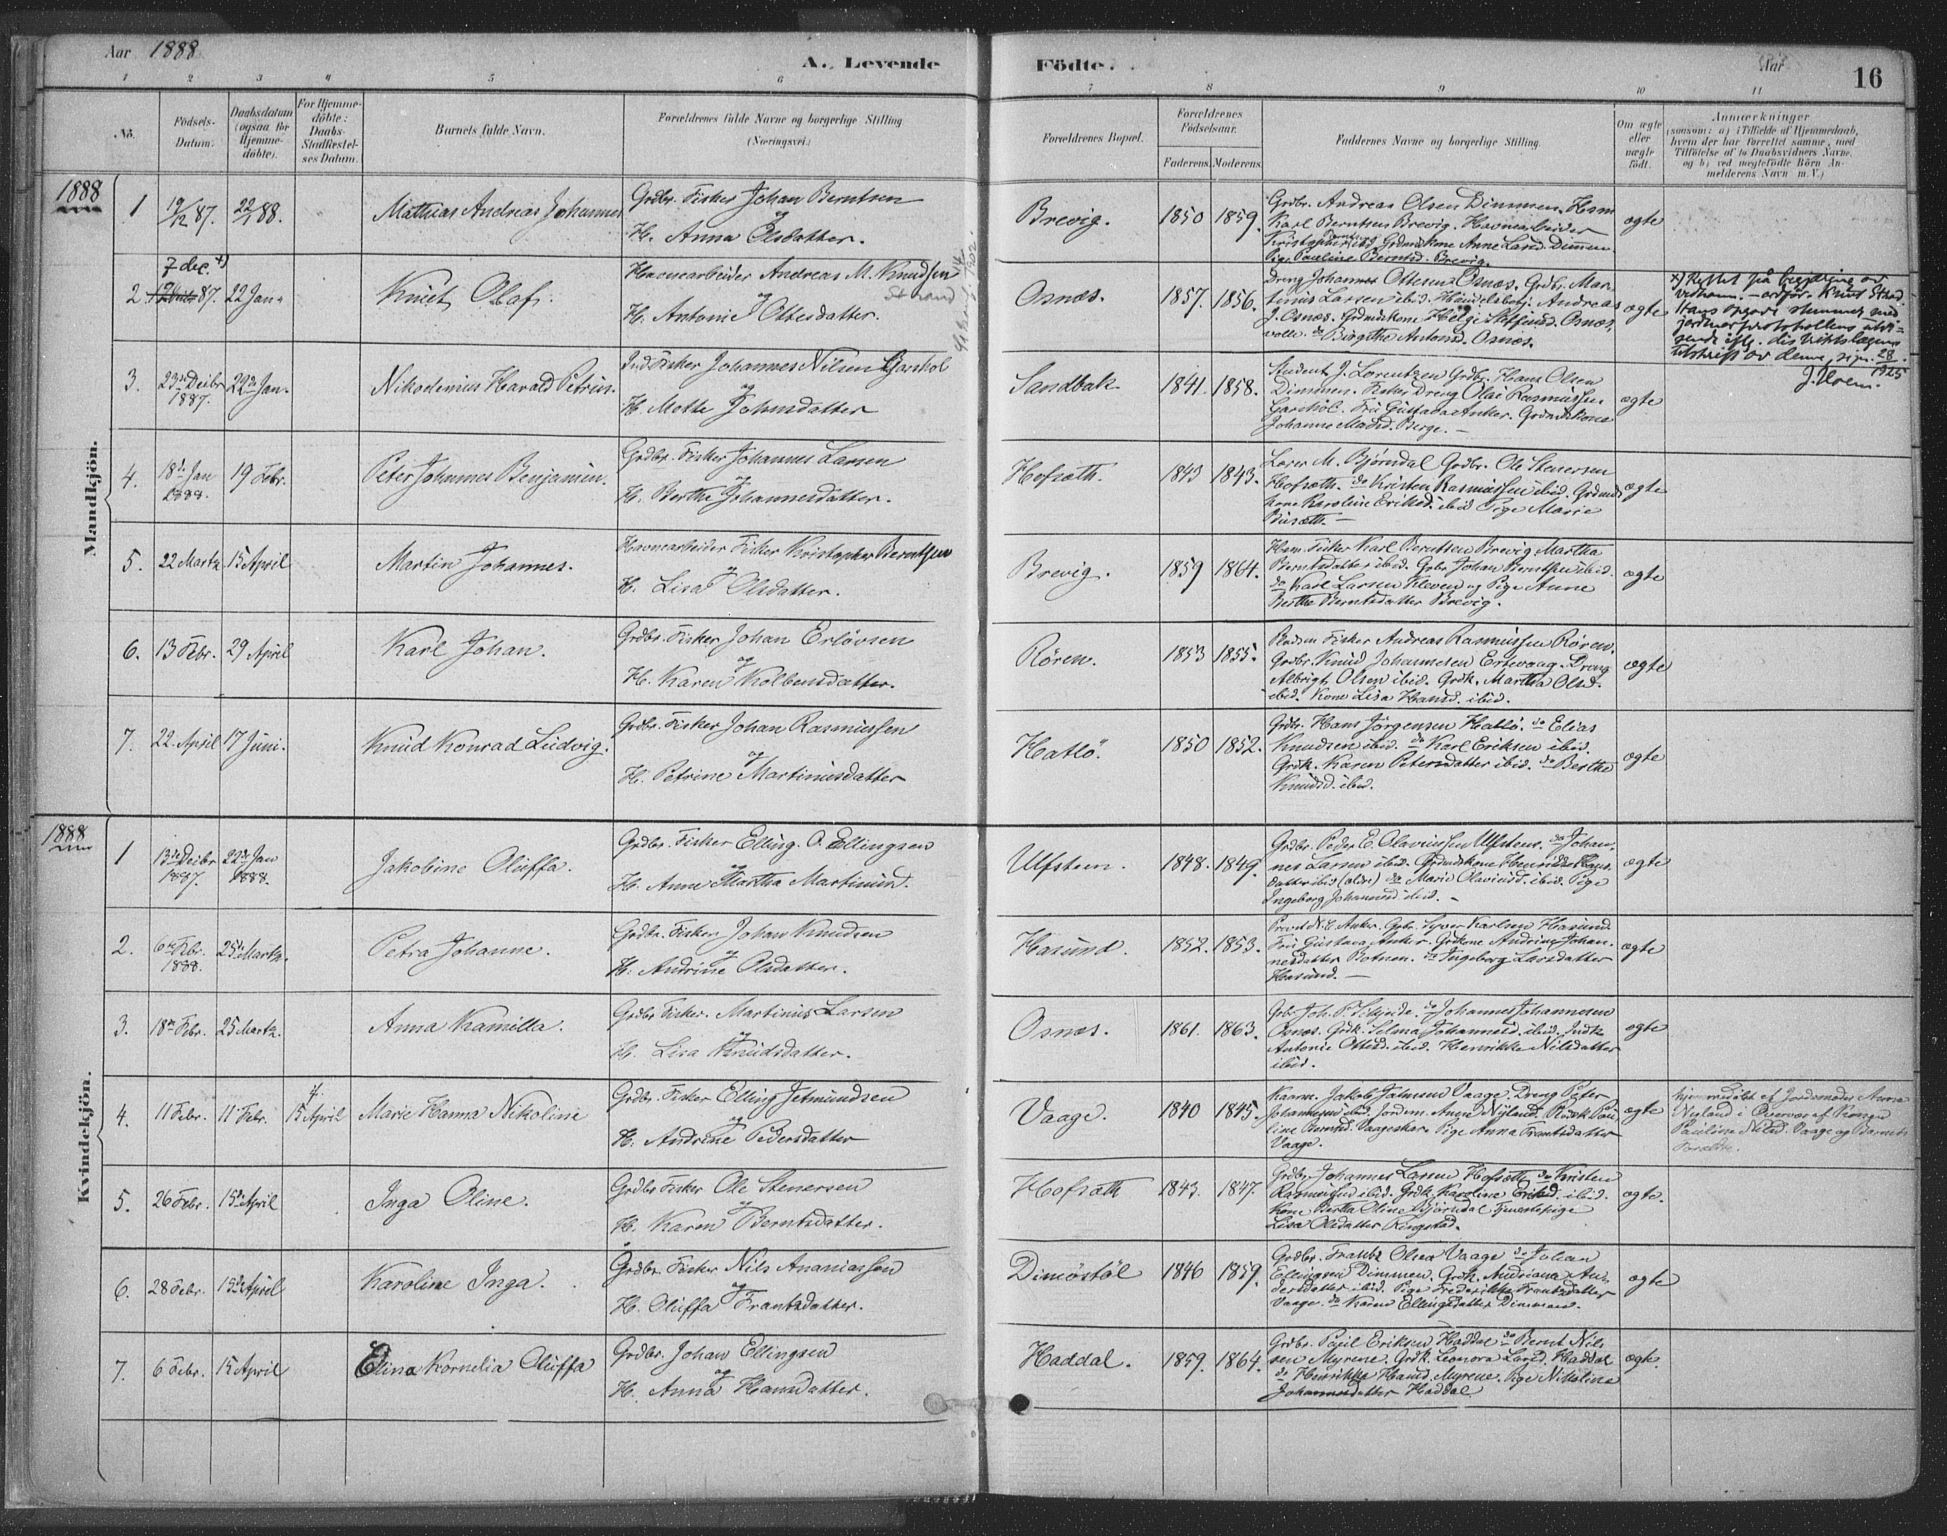 Aar 1888
A. Levende Födte.
Aar
16
1 2 3 4 5 6 7 8 9 10 11
No.
Födsels-Datum.
Daabsdatum (ogsaa for Hjemme-döbte).
For Hjemme-döbte: Daabs-Stadfæstel-ses Datum.
Barnets fulde Navn.
Forældrenes fulde Navne og borgerlige Stilling
(Næringsvei.)
Forældrenes Bopæl.
Forældrenes Födselsaar.
Faderens. Moderens.
Faddernes Navne og borgerlige Stilling.
Om ægte eller uægte födt.
Anmærkninger
(saasom: a) i Tilfælde af Hjemmedaab,
hvem der har forrettet samme, med
Tilföielse af to Daabsvidners Navne,
og b) ved uægtefödte Börn An-
melderens Navn m. V.)
1888
Mandkjön.
1 19/12 87. 22/1 88. Mathias Andreas Johannes
Grdbr. Fisker Johan Berntsen
og
H. Anna Olsdatter.
Brevig. 1850 1859.
Grdbr. Andreas Olsen Dimmen. Hsm
Karl Berntsen Brevig. Havnearbeider
Kristopher ibid. Grdmdskone Anne Larsd. Dimmen
Pige Pauline Berntsd. Brevig.
ægte
2 7 dec. x) 87. 22 Jan. Knut Olaf.
Havnearbeider Andreas M. Knudsen
Strand
og
H. Antonie Ottesdatter.
Osnæs. 1857. 1856.
Dreng Johannes Ottesen Osnæs. Grdbr. Mar-
tinus Larsen ibid. Handelsbetj. Andreas
J. Osnæs. Grdmdskone Helge Osnæs.
do Birgithe Antonsd. Osnæs.
ægte
x) Rettet på begjæring av
vedkom. Knut Strand.
Hans opgave stemmer med
jordmorprotokollens
utskrift av denne,
28 1925
J.
3. 23de Decbr 1887. 22de Jan. Nikodemus Harald Petrin.
Ind. Fisker Johannes Nilsen Garshol
og
H. Mette Johnsdatter
Sandbak. 1841. 1858.
Student J. Lorentzen Grdbr. Hans Olsen
Dimmen. Fisker Dreng Olai Rasmussen
Garshol. Frü Gustava Anker. Grdmdskone
Johanne Madsd. Berge.
ægte
4. 18de Jan 1888. 19 Febr. Peter Johannes Benjamin.
Grdbr. Fisker Johannes Larsen
og
H. Berthe Johannesdatter.
Hofsæth. 1843 1843.
Lærer M. Bjørndal Grdbr. Ole Stenersen
Hofsæth. do Kristen Rasmussen ibid. Grdmds
kone Karoline Eriksd. ibid Pige Marie
ægte
5. 22 Martz 15 April Martin Johannes.
Havnearbeider Fisker Kristopher Berntsen
og
H. Lisa Olsdatter.
Brevig. 1859 1864.
Hsm. Fisker Karl Berntsen Brevig Martha
Berntsdatter ibid. Gdbr. Johan Berntsen ibid.
do Karl Larsen Kleven og Pige Anne
Berthe Berntsdatter Brevig.
ægte
6. 13 Febr. 29 April Karl Johan.
Grdbr. Fisker Johan Erlövsen
og
H. Karen Kolbensdatter.
Røren. 1853 1855.
Fisker Andreas Rasmussen Røren.
Grdbr. Knud Johannesen Ertevaag. Dreng
Albrigt Olsen ibid. Grdk. Martha Olsd.
ibid. Kone Lisa Hansd. ibid.
ægte
7. 22 April 17 Juni. Knud Konrad Ludvig.
Grdbr. Fisker Johan Rasmussen
og
H. Petrine Martinusdatter
Hatlö. 1850 1852.
Grdbr. Hans Jørgensen Hatlö. do Elias
Knudsen ibid. do Karl Eriksen ibid.
Grdk. Karen Petersdatter ibid. do Berthe
Knudsd. ibid.
ægte
1888
Kvindekjön.
1 13de Decbr 1887. 22de Jan 1888. Jakobine Olüffa.
Grdbr. Fisker Elling O. Ellingsen
og
H. Anne Martha Martinusd.
Ulfsten. 1848. 1849.
Grdbr. Peder E. Olaviusen Ulfsten. do Johan-
nes Larsen ibid. Grdmdskone Henrikke Hans-
datter ibid (ældre) do Marie Olaviusd. ibid. Pige
Ingeborg Johannesd ibid.
ægte
2. 6te Febr. 1888. 25de Martz. Petra Johanne.
Grdbr. Fisker Johan Knudsen
og
H. Andrine Olsdatter.
Hasund. 1852. 1853.
N. C. Anker. Gdbr. Syver Karlsen Hasund
Frü Gustava Anker. Grdkone Andrine Johan-
nesdatter Botnen. do Ingeborg Larsdatter
Hasund.
ægte
3. 18de Febr. 25 Martz. Anna Kamilla.
Grdbr Fisker. Martinus Larsen
og
H. Lisa Knudsdatter.
Osnæs. 1861. 1863.
Gdb. Joh. P. do Johannes Johannesen
Osnæs. Grdk. Selma Johannesd. ibid. Indk.
Antonie Ottesd. ibid. Henrikke Nilsdatter
ibid.
ægte
4. 11 Febr. 11 Febr. 15 April Marie Hanna Nikoline
Grdbr. Fisker Elling Jetmundsen
og
H. Andrine Pedersdatter
Vaage. 1840 1845.
Kaarm. Jakob Vaage. Dreng Peter
Johannesen ibid. Jordem. Anne Nyland.
Berntsd. Vaageskar. Pige Anna Frantsdatter
Vaage.
ægte
Hjemmedøbt af Jordemoder Anne
Nyland i Overvær af
Pauline Nilsd. Vaage og Barnets
Forældre.
5. 26 Febr. 15de April Inga Oline.
Grdbr Fisker Ole Stenersen
og
H. Karen Berntsdatter.
Hofsæth 1843. 1847.
Grdbr. Johannes Larsen Hofsæth. do Kristen
Rasmussen ibid. Grdk. Karoline Eriksd. ibid.
Kone Bertha Oline Bjørndal. Tjenestepige
Lisa Olsdatter Ringstad.
ægte.
6. 28 Febr. 15de April Karoline Inga.
Grdbr. Fisker Nils Ananiassen
og
H. Olüffa Frantsdatter.
Dimöstöl 1846 1859.
Grdbr. Frants Olsen Vaage do Johan
Ellingsen Dimmen. Grdk. Andriana An-
dersdatter ibid. Pige Frederikke Frantsdatter
Vaage. do Karen Ellingsdatter Dimmen.
ægte
7. 6 Febr. 15 April Elina Kornelia Oluffa
Grdbr. Johan Ellingsen
og
H. Anna Hansdatter.
Haddal. 1859. 1864.
Grdbr. Paul Eriksen Haddal do Bernt Nils
sen Myrene. Grdk. Leonora Larsd. Haddal
do Henrikke Hansd. Myrene. Pige Nikoline
Johannesdatter Haddal
ægte.